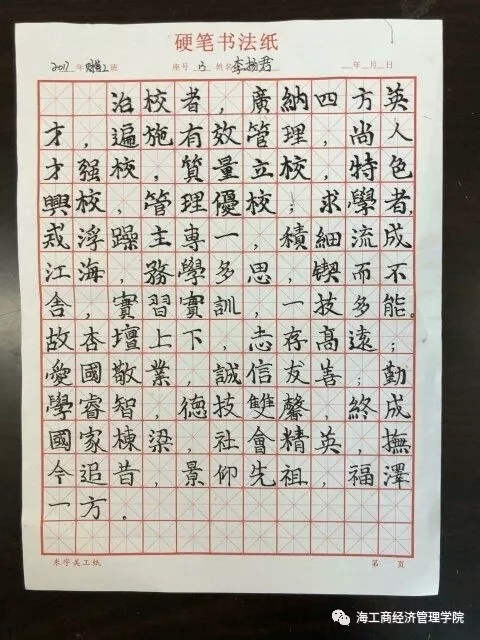 硬笔书法纸
2017年财管2班 座号13姓名李扬君 年 月 日
治校者，廣納四方英
才，遍施有效管理，尚人
才强校，質量立校，特色
興校，管理優校；求學者，
戒浮躁主專一，積細流成
江海，務學多思，锲而不
舍，實習實訓，一技多能。
故杏壇上下，志存高遠；
愛國敬業，誠信友善；勤
學睿智，德技雙馨，終成
國家棟梁，社會精英，撫
今追昔，景仰先祖，福澤
一方。
米字美工纸 第 页
海工商经济管理学院